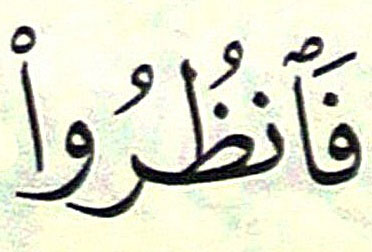 فَٱنظُرُوا۟